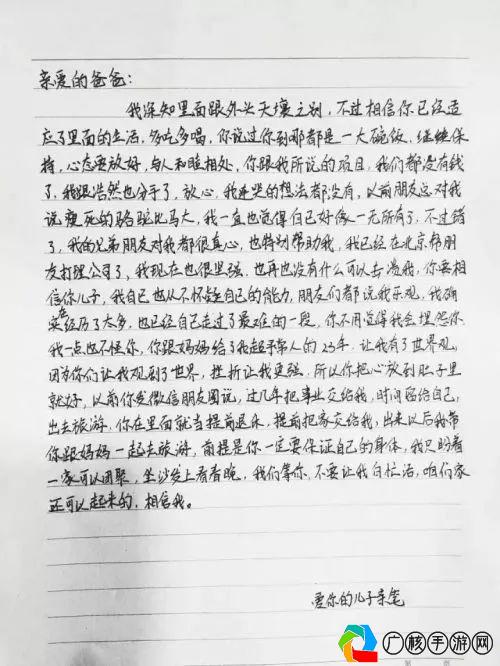 亲爱的爸爸：
我深知里面跟外头天壤之别，不过相信你已经适
应了里面的生活，多吃多喝，你说过你到哪都是一大碗饭，继续保
持，心态要放好，与人和睦相处，你跟我所说的项目，我们都没有钱
了，我跟浩然也分手了，放心，我连哭的想法都没有，以前朋友总对我
说瘦死的骆驼比马大，我一直也觉得自己好像一无所有了，不过错
了，我的兄弟朋友对我都很真心，也特别帮助我，我已经在北京帮朋
友打理公司了，我现在也很坚强，也再也没有什么可以击溃我，你要相
信你儿子，我自己也从不怀疑自己的能力，朋友们都说我乐观，我确
实在经历了太多，也已经自己走过了最难的一段，你不用觉得我会埋怨你，
我一点也不怪你，你跟妈妈给了我超乎常人的23年，让我有了世界观，
因为你们让我观到了世界，挫折让我更强，所以你把心放到肚子里
就好，以前你发微信朋友圈说，过几年把事业交给我，时间留给自己，
出去旅游，你在里面就当提前退休，提前把家交给我，出来以后我带
你跟妈妈一起去旅游，前提是你一定要保证自己的身体，我只盼着
一家可以团聚，坐沙发上看春晚，我们等你，不要让我白忙活，咱们家
还可以起来的，相信我。
爱你的儿子亲笔
广核手游网